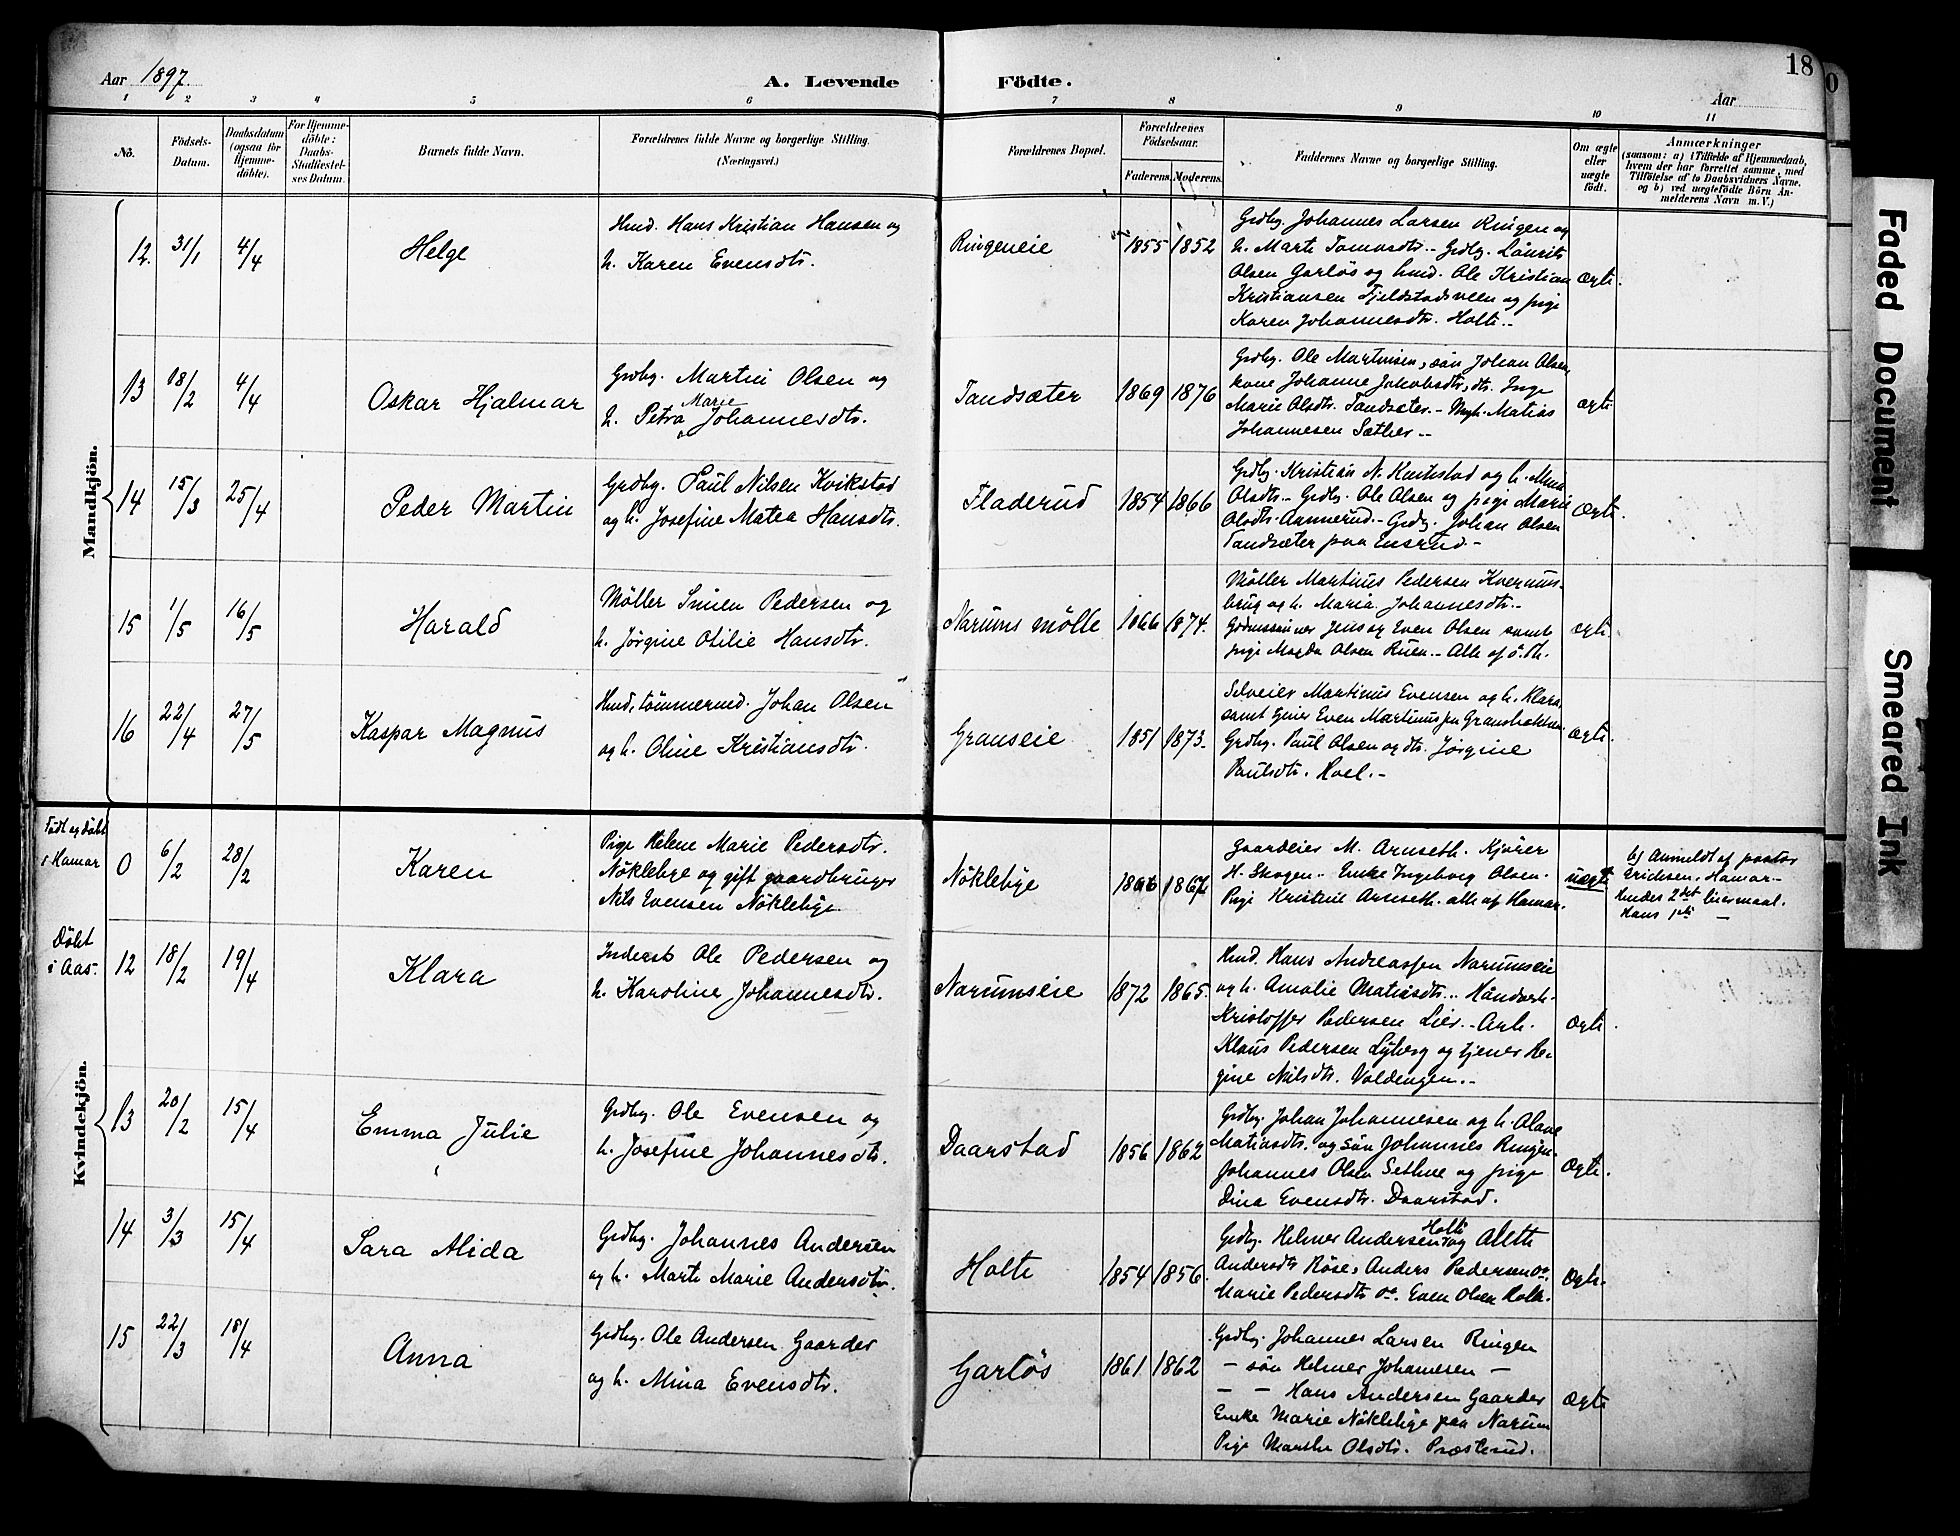 Aar 1897.
A. Levende
Födte.
Aar
18
1 2 3 4 5 6 7 8 9 10 11
No.
Födsels-
Datum.
Daabsdatum
(ogsaa for
Hjemme-
döbte).
For Hjemme-
döbte:
Daabs-
Stadfæstel-
ses Datum.
Barnets fulde Navn.
Forældrenes fulde Navne og borgerlige Stilling.
(Næringsvei.)
Forældrenes Bopæl.
Forældrenes
Födselsaar.
Faderens. Moderens.
Faddernes Navne og borgerlige Stilling.
Om ægte
eller
uægte
födt.
Anmærkninger
(saasom: a) i Tilfælde af Hjemmedaab,
hvem der har forrettet samme, med
Tilföielse af to Daabsvidners Navne,
og b) ved uægtefödte Börn An-
melderens Navn m. V.)
Mandkjön.
12. 31/1 4/4
Helge
Hmd. Hans Kristian Hansen og
h. Karen Evensdtr.
Ringeneie
1855 1852
Grdbg. Johannes Larsen Ringen og
h. Marte Tomasdtr. - Grdbg. Laurits
Olsen Garlös og hmd. Ole Kristian
Kristiansen Fjeldstadsveen og pige
Karen Johannesdtr. Holte. -
ægte.
13 18/2 4/4
Oskar Hjalmar
Grdbg. Martin Olsen og
h. Petra Marie Johannesdtr.
Tandsæter
1869 1876
Grdbg. Ole Martinsen, sön Johan Olsen
kone Johanne Jakobsdtr, dtr. Inge
Marie Olsdtr. Tandsæter. - Ungk. Matias
Johannesen Sæther. -
ægte
14 15/3 25/4
Peder Martin
Grdbg. Paul Nilsen Kvikstad
og h. Josefine Matea Hansdtr.
Fladerud
1854 1866
Grdbg. Kristian N. Kvikstad og h. Mina
Olsdtr. - Grdbg. Ole Olsen og pige Marie
Olsdtr. Aannerud. - Grdbg. Johan Olsen
Tandsæter paa Ensrud. -
Ægte.
15 1/5 16/5
Harald
Möller Simen Pedersen og
h. Jörgine Otilie Hansdtr.
Narums mölle
1866 1874.
Möller Martinus Pedersen Kvernum-
brug og h. Maria Johannesdtr. -
Gdmssönner Jens og Even Olsen samt
pige Magda Olsen Ruen. - Alle af ö. Th.
ægte
16 22/4 27/5
Kaspar Magnus
Hmd, tömmermd. Johan Olsen
og h. Oline Kristiansdtr.
Granseie
1851 1873.
Selveier Martinus Evensen og h. Klara
samt Even Martinus paa Gransbakken
Grdbg. Paul Olsen og dtr. Jörgine
Paulsdtr. Hoel. -
ægte.
Kvindekjön.
Födt og döbt
i Hamar
0 6/2 28/2
Karen
Pige Helene Marie Pedersdtr.
Nöklebye og gift gaardbruger
Nils Evensen Nöklebye.
Nöklebye
1866 1867
Gaardeier M. Arnseth. Kjörer
H. Skogen. - Enke Ingeborg Olsen.
Pige Kristine Arnseth. alle af Hamar.
uægte
b) Anmeldt af pastor
Erichsen, Hamar. -
Hendes 2det leiermaal.
Hans 1ste -
Döbt
i Aas.
12 18/2 19/4
Klara
Inderst Ole Pedersen og
h. Karoline Johannesdtr.
Narumseie
1872 1865.
Hmd. Hans Andreassen Narumseie
og h. Amalie Matiasdtr. - Håndverk.
Kristoffer Pedersen Lier. - Arb.
Klaus Pedersen Lyberg og tjener Re-
gine Nilsdtr. Voldengen. -
Ægte.
13 20/2 15/4
Emma Julie
Grdbg. Ole Evensen og
h. Josefine Johannesdtr.
Daarstad
1856 1862
Grdbg. Johan Johannesen og h. Olave
Matiasdtr. og sön Johannes Ringen.
Johannes Olsen Sethne og pige
Dina Evensdtr. Daarstad.
Ægte.
14 3/3 15/4
Sara Alida
Grdbg. Johannes Andersen
og h. Marte Marie Andersdtr.
Holte
1854 1856.
Grdbg. Helmer Andersen Holte og Alette
Andersdtr Röse, Anders Pedersen og
Marie Pedersdtr og Even Olsen Holte.
Ægte.
15 22/3 18/4
Anna
Grdbg. Ole Andersen Gaarder
og h. Mina Evensdtr.
Garlös
1861 1862
Grdbg. Johannes Larsen Ringen
- sön Helmer Johannesen -
- - Hans Andersen Gaarder
Enke Marie Nöklebye paa Narum
Pige Marthe Olsdtr. Præsterud.
Ægte
Faded Document
Smeared Ink